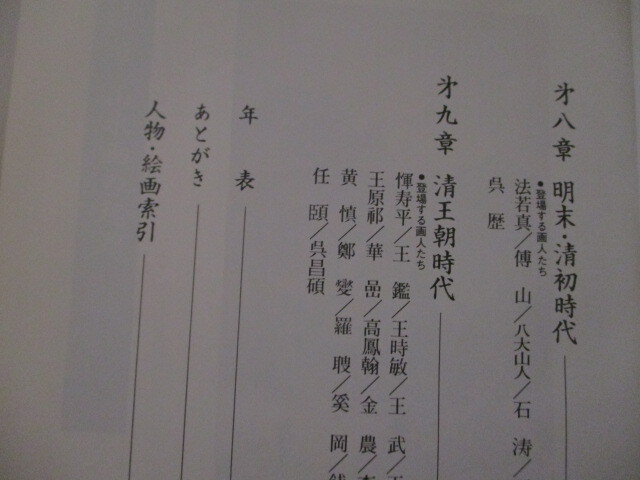 第八章 明末・清初時代
●登場する画人たち
法若真／傅 山／八大山人／石 涛／
呉 歴
第九章 清王朝時代
●登場する画人たち
惲寿平／王 鑑／王時敏／王 武／王
王原祁／華 嵒／高鳳翰／金 農／
黄 慎／鄭 燮／羅 聘／奚 岡／銭
任 頤／呉昌碩
年 表
あとがき
人物・絵画索引